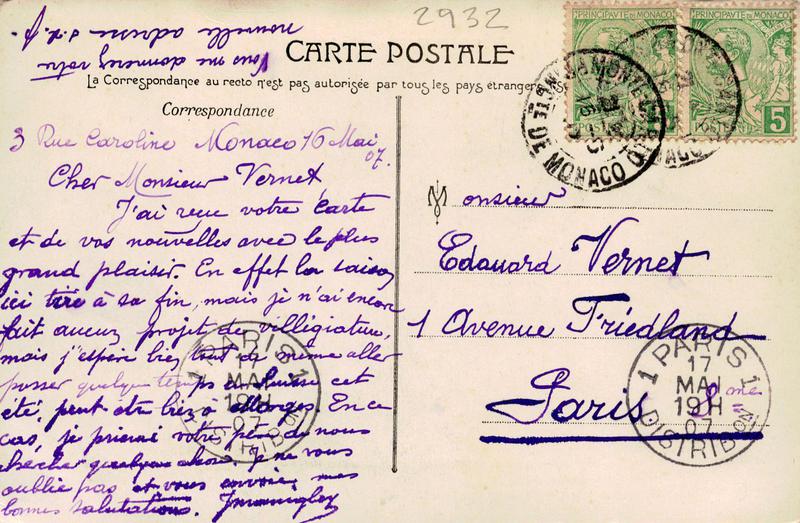 2932
CARTE POSTALE
La Correspondance au recto n'est pas autorisée par tous les pays étrangers
Correspondance
3 Rue Caroline Monaco 16 Mai 07.
Cher Monsieur Vernet,
J'ai reçu votre carte
et de vos nouvelles avec le plus
grand plaisir. En effet la saison
ici tire à sa fin, mais je n'ai encore
fait aucun projet de villégiature,
mais j'espère bien tout de même aller
passer quelque temps en Suisse cet
été, peut être bien à . En ce
cas, je prierai votre père de nous
chercher quelque chose. Je ne vous
oublie pas et vous envoie mes
bonnes salutations.
Vous me donnerez votre
nouvelle adresse s.v.p.
Monsieur
Edouard Vernet
1 Avenue Friedland
Paris 8me
PRINCIPAUTÉ DE MONACO
5
POSTES
PRINCIPAUTÉ DE MONACO
5
POSTES
MONTE CARLO
PTE DE MONACO
1 PARIS 1
17
MAI
19H
07
DISTRIBON
1 PARIS 1
17
MAI
19H
07
DISTRIBON